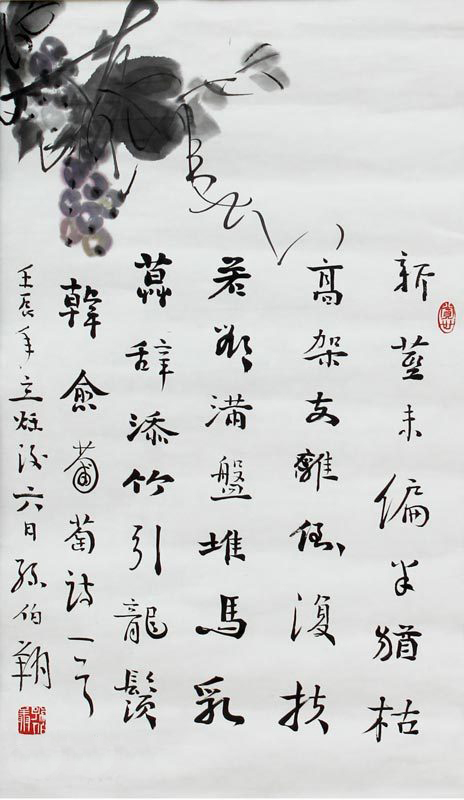 新莖未偏半猶枯
高架支離倒復扶
若欲滿盤堆馬乳
莫辭添竹引龍鬚
韓愈葡萄詩一首
壬辰年立秋後六日孫伯翔